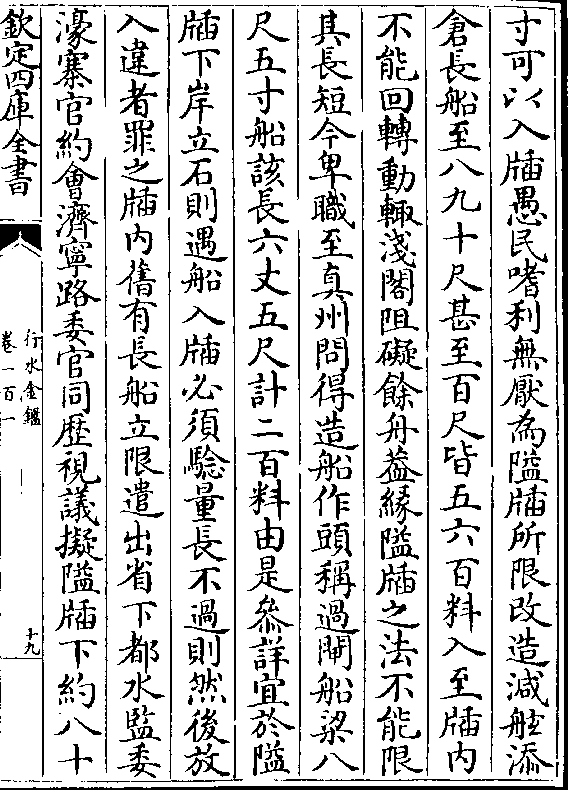 寸可以入牐愚民嗜利無厭為隘牐所限改造減舷添
倉長船至八九十尺甚至百尺皆五六百料入至牐内
不能回轉動輙淺閣阻礙餘舟葢縁隘牐之法不能限
其長短今卑職至真州問得造船作頭稱過閘船梁八
尺五寸船該長六丈五尺計二百料由是參詳宜於隘
牐下岸立石則遇船入牐必須驗量長不過則然後放
入違者罪之牐内舊有長船立限遣出省下都水監委
濠寨官約會濟寧路委官同歴視議擬隘牐下約八十
欽定四庫全書
行水金鑑
卷一百一
十九